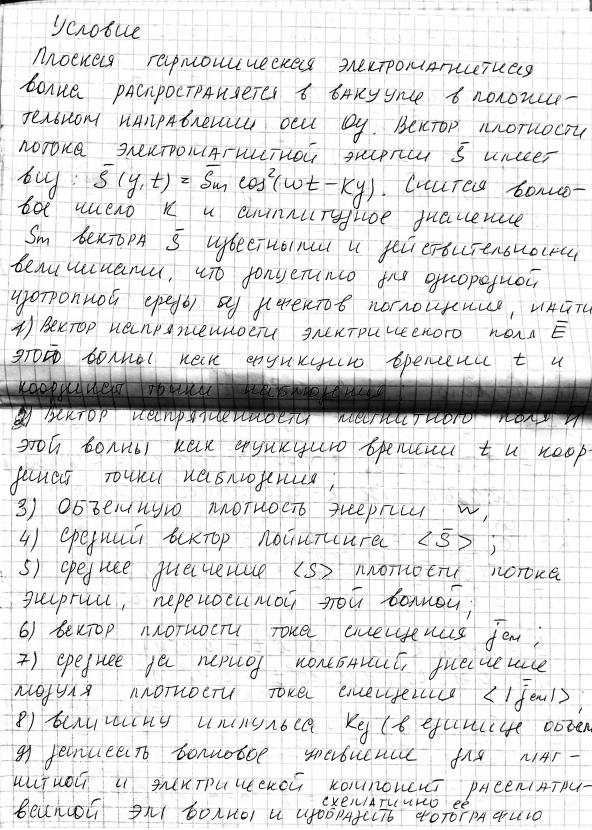 Условие
Плоская гармоническая электромагнитная
волна распространяется в вакууме в положи-
тельном направлении оси Oy. Вектор плотности
потока электромагнитной энергии S̄ имеет
вид: S̄(y,t) = S̄m cos²(ωt - Ky). Считая волно-
вое число K и амплитудное значение
Sm вектора S̄ известными и действительными
величинами, что допустимо для однородной
изотропной среды без эффектов поглощения, найти
1) Вектор напряженности электрического поля Ē
этой волны как функцию времени t и
координат точки наблюдения
2) Вектор напряженности магнитного поля H̄
этой волны как функцию времени t и коор-
динат точки наблюдения;
3) Объемную плотность энергии w;
4) средний вектор Пойнтинга <S̄>;
5) среднее значение <S> плотности потока
энергии, переносимой этой волной;
6) вектор плотности тока смещения j̄см;
7) среднее за период колебаний значение
модуля плотности тока смещения <|j̄см|>;
8) величину импульса Kед (в единице объем
9) записать волновое уравнение для маг-
нитной и электрической компонент рассматри-
схематично ее
ваемой ЭМ волны и изобразить фотографию